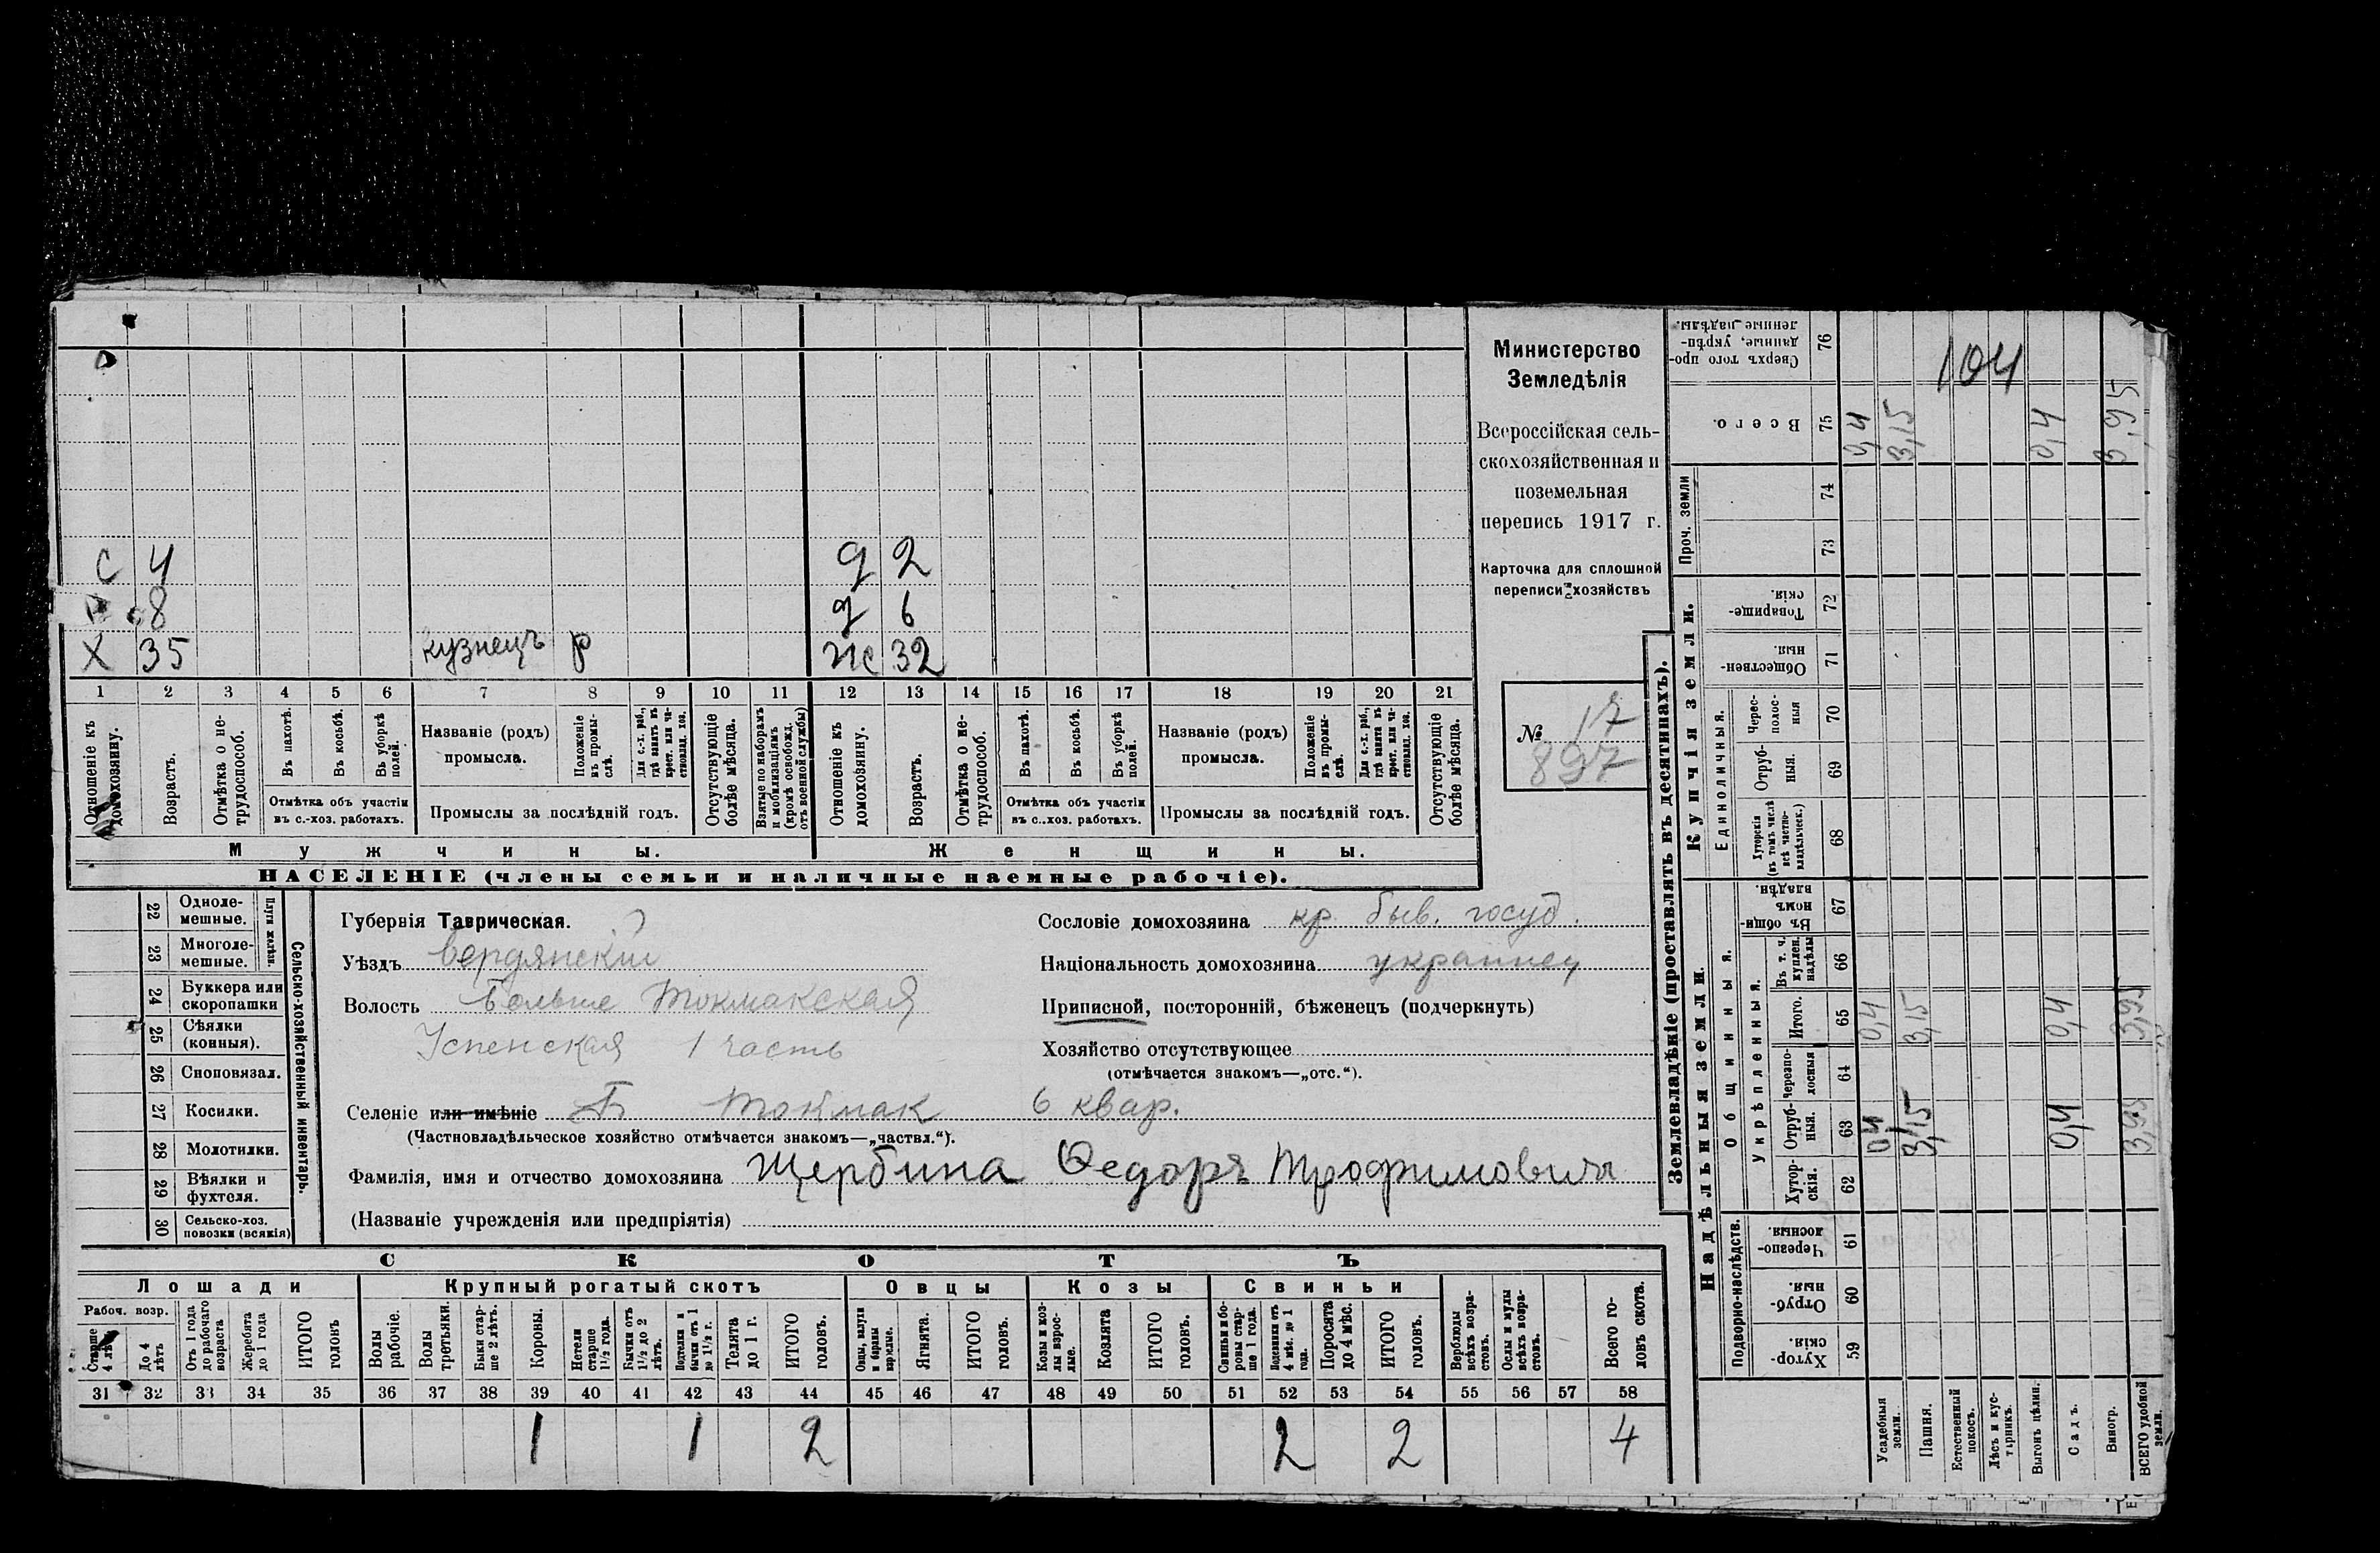 С 4 д 2
8 д 6
Х 35 кузнецъ р ж 32
1 2 3 4 5 6 7 8 9 10 11 12 13 14 15 16 17 18 19 20 21
Отношеніе къ домохозяину.
Возрастъ.
Отмѣтка о нетрудоспособ.
Въ пахотѣ.
Въ косьбѣ.
Въ уборкѣ полей.
Отмѣтка объ участіи въ с.-хоз. работахъ.
Названіе (родъ) промысла.
Положеніе въ промыслѣ.
Для с.-х. раб., гдѣ занятъ въ крест. или частновлад. хоз.
Промыслы за послѣдній годъ.
Отсутствующіе болѣе мѣсяца.
Взятые по наборамъ и мобилизаціямъ (кромѣ освобожд. отъ военной службы)
Отношеніе къ домохозяину.
Возрастъ.
Отмѣтка о нетрудоспособ.
Въ пахотѣ.
Въ косьбѣ.
Въ уборкѣ полей.
Отмѣтка объ участіи въ с.-хоз. работахъ.
Названіе (родъ) промысла.
Положеніе въ промыслѣ.
Для с.-х. раб., гдѣ занята въ крест. или частновлад. хоз.
Промыслы за послѣдній годъ.
Отсутствующіе болѣе мѣсяца.
Мужчины. Женщины.
НАСЕЛЕНІЕ (члены семьи и наличные наемные рабочіе).
Министерство
Земледѣлія
Всероссійская сель-
скохозяйственная и
поземельная
перепись 1917 г.
Карточка для сплошной
переписи хозяйствъ
№ 17
897
22 Одноле-мешные.
23 Многоле-мешные.
24 Буккера или скоропашки
25 Сѣялки (конныя).
26 Сноповязал.
27 Косилки.
28 Молотилки.
29 Вѣялки и фухтеля.
30 Сельско-хоз. повозки (всякія)
Сельско-хозяйственный инвентарь.
Губернія Таврическая.
Уѣздъ Бердянскій
Волость Больше Токмакская
Успенская 1 часть
Селеніе или имѣніе Б Токмак 6 квар.
(Частновладѣльческое хозяйство отмѣчается знакомъ—„частвл.“).
Фамилія, имя и отчество домохозяина Щербина Федоръ Трофимовичъ
(Названіе учрежденія или предпріятія)
Сословіе домохозяина кр. быв. госуд.
Національность домохозяина украинец
Приписной, посторонній, бѣженецъ (подчеркнуть)
Хозяйство отсутствующее
(отмѣчается знакомъ—„отс.“).
СКОТЪ
Лошади Крупный рогатый скотъ Овцы Козы Свиньи
Рабоч. возр.
Старше 4 лѣтъ
До 4 лѣтъ
Отъ 1 года до рабочаго возраста
Жеребята до 1 года
ИТОГО головъ
Волы рабочіе.
Волы третьяки.
Быки старше 2 лѣтъ.
Коровы.
Нетели старше 1½ года.
Бычки отъ 1½ до 2 лѣтъ.
Подтелки и бычки отъ 1 до 1½ г.
Телята до 1 г.
ИТОГО головъ.
Овцы, валухи и бараны взрослые.
Ягнята.
ИТОГО головъ.
Козы и козлы взрослые.
Козлята
ИТОГО головъ.
Свиньи и боровы старше 1 года.
Подсвинки отъ 4 мѣс. до 1 года.
Поросята до 4 мѣс.
ИТОГО головъ.
Верблюды всѣхъ возрастовъ.
Ослы и мулы всѣхъ возрастовъ.
Всего головъ скота.
31 32 33 34 35 36 37 38 39 40 41 42 43 44 45 46 47 48 49 50 51 52 53 54 55 56 57 58
1 1 2 2 2 4
Землевладѣніе (проставлять въ десятинахъ).
Надѣльныя земли. Купчія земли. Проч. земли
Подворно-наслѣдств. Общинныя. Единоличныя.
Укрѣпленныя.
Хутор-скія. 59
Отруб-ныя. 60
Черезпо-лосныя 61
Хутор-скія. 62
Отруб-ныя. 63
Черезпо-лосныя 64
Итого. 65
Въ т. ч. куплен. надѣлы 66
Въ общин-номъ владѣн. 67
Хуторскія (въ томъ числѣ всѣ частно-владѣльческ.) 68
Отруб-ныя. 69
Черес-полос-ныя 70
Обществен-ныя. 71
Товарище-скія. 72
73
74
Всего. 75
Сверхъ того про-данные, укрѣп-ленные надѣлы. 76
Усадебныя земли. 0,4 0,4 0,4
Пашня. 3,15 3,15 3,15
Естественный покосъ.
Лѣсъ и кус-тарникъ.
Выгонъ цѣлин.
Садъ. 0,4 0,4 0,4
Виногр.
ВСЕГО удобной земли. 3,95 3,95 3,95
104